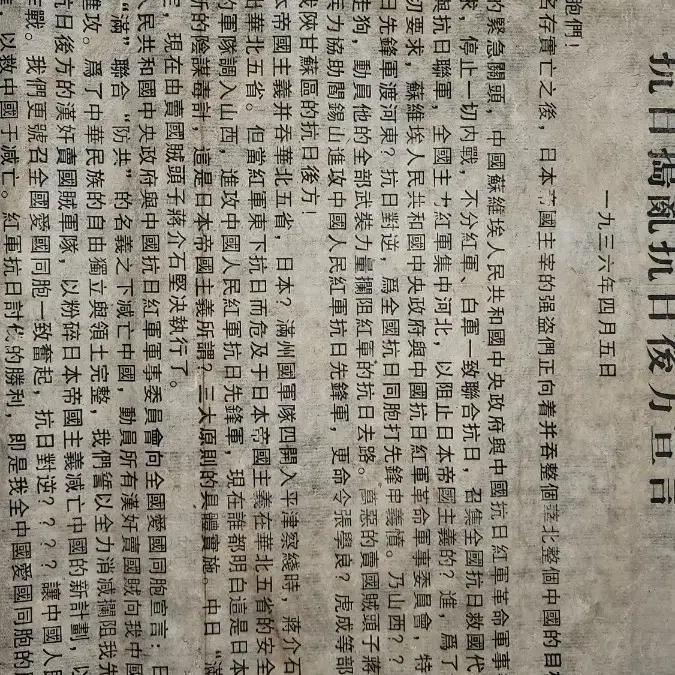 抗日搗亂抗日後方宣言
一九三六年四月五日
胞們！
名存實亡之後，日本 國主宰的强盗們正向着并吞整個華北整個中國的目
的緊急關頭，中國蘇維埃人民共和國中央政府與中國抗日紅軍革命軍事
，停止一切内戰，不分紅軍、白軍一致聯合抗日，召集全國抗日救國代
與抗日聯軍，全國主力紅軍集中河北，以阻止日本帝國主義的？進，爲了
切要求，蘇維埃人民共和國中央政府與中國抗日紅軍革命軍事委員會，特
日先鋒軍渡河東？抗日討逆，爲全國抗日同胞打先鋒申義憤。乃山西？？
走狗，動員他的全部武裝力量攔阻紅軍的抗日去路。萬惡的賣國賊頭子蔣
兵力協助閻錫山進攻中國人民紅軍抗日先鋒軍，更命令張學良？虎成等部
我陝甘蘇區的抗日後方！
帝國主義并吞華北五省，日本？滿州國軍隊四開入平津察綏時，蔣介石
出華北五省。但當紅軍東下抗日而危及于日本帝國主義在華北五省的安全
的軍隊調入山西，進攻中國人民紅軍抗日先鋒軍，現在誰都明白這是日本
新的陰謀毒計，這是日本帝國主義所謂？三大原則的具體實施。中日“滿
，現在由賣國賊頭子蔣介石堅决執行了。
人民共和國中央政府與中國抗日紅軍軍事委員會向全國愛國同胞宣言：日
“滿”聯合“防共”的名義之下滅亡中國，動員所有漢奸賣國賊向我中國
進攻。爲了中華民族的自由獨立與領土完整，我們誓以全力消滅攔阻我先
抗日後方的漢奸賣國賊軍隊，以粉碎日本帝國主義滅亡中國的新計劃，以
作戰。我們更號召全國愛國同胞一致奮起，抗日對逆？？？？讓中國人民
，以救中國于滅亡。紅軍抗日討伐的勝利，即是我全中國愛國同胞的